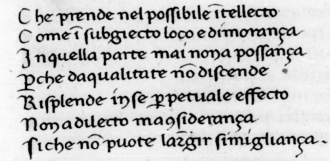 Che prende nel possibile ītellecto
Come ī subgiecto loco e dimorança
In quella parte mai non a possança
P̱che da qualitate nō discende
Risplende in se p̱petuale effecto
Non a dilecto ma cōsiderança
Si che nō puote largir simigliança.